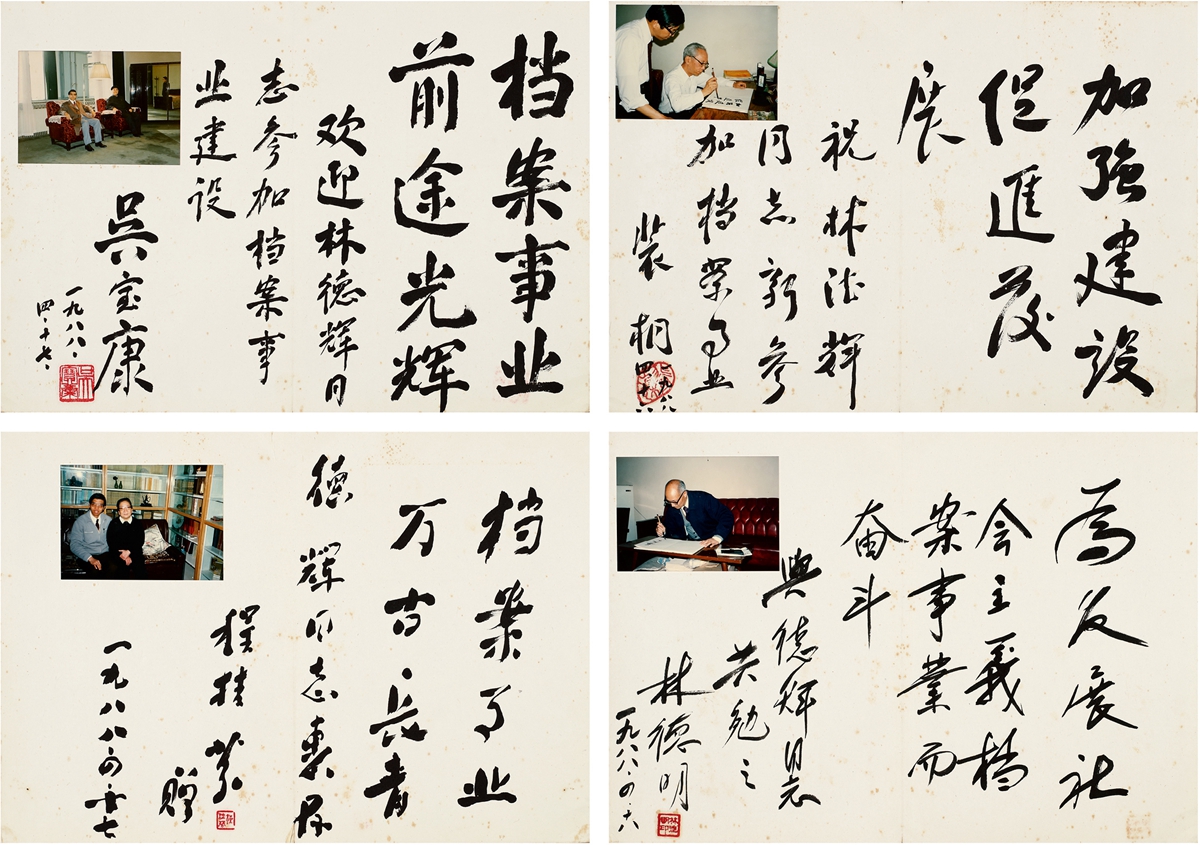 档案事业
前途光辉
欢迎林德辉同
志参加档案事
业建设
吳宝康
一九八八、
四、十七、
加强建设
促進发
展
祝林德辉
同志新参
加档案事业
裴桐
档案事业
万古长青
德辉同志惠存
程桂芬
赠
一九八八、四、
為发展社
会主義档
案事業而
奋斗
與德辉同志
共勉之
林德明
一九八八·四·